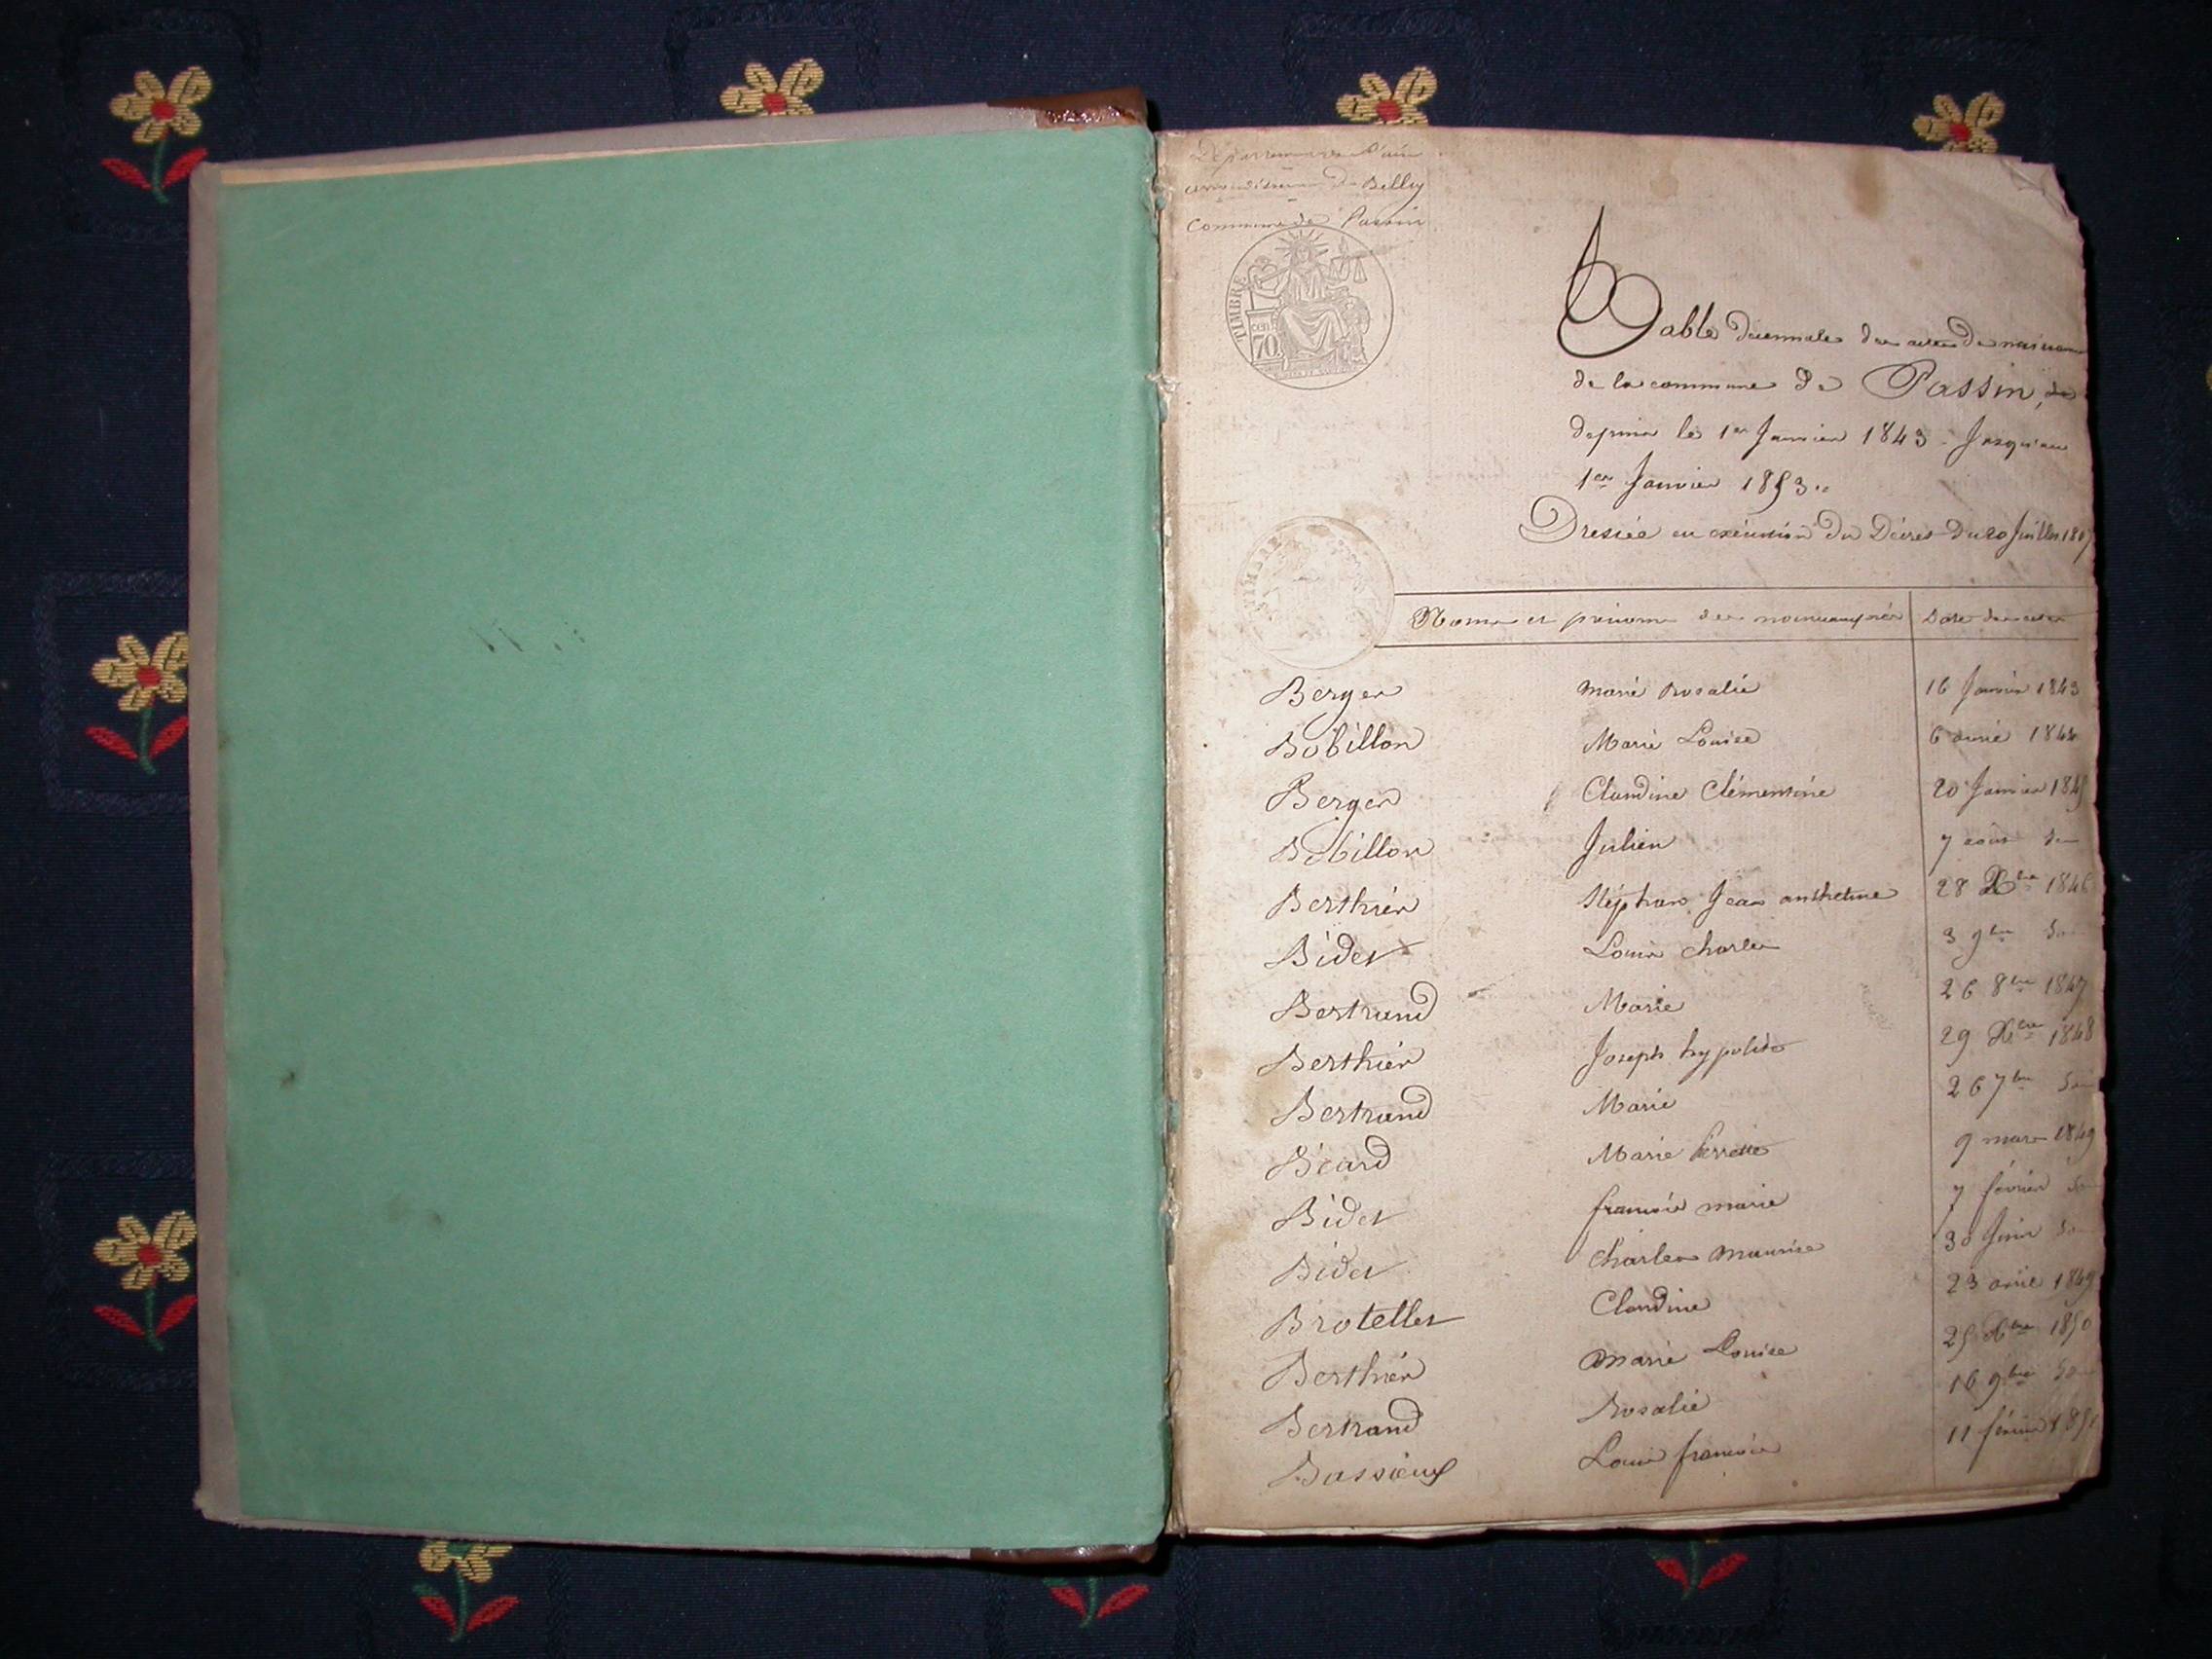 Département de l'ain
arrondissement de Belley
commune de Passin
TIMBRE
cen
70
Table décennale des actes de naissance
de la commune de Passin, de
depuis le 1er Janvier 1843 Jusqu'au
1er Janvier 1853.
Dressée en exécution du Décret du 20 Juillet 1807
TIMBRE
Noms et prénoms des nouveaux nés Date des actes
Berger Marie Rosalie 16 Janvier 1843
Bobillon Marie Louise 6 avril 1844
Berger Claudine Clémentine 20 Janvier 1845
Bobillon Julien 7 août do
Berthier Stéphane Jean anthelme 28 Xbre 1846
Bidet Louis charles 3 9bre do
Bertrand Marie 26 8bre 1847
Berthier Joseph hypolite 29 Xbre 1848
Bertrand Marie 26 7bre do
Béard Marie Perrette 9 mars 1849
Bidet françois marie 7 février do
Bidet Charles Maurice 30 Juin do
Brotellet Claudine 23 avril 1849
Berthier Marie Louise 25 Xbre 1850
Bertrand Rosalie 16 9bre do
Bassieux Louis françois 11 février 1851